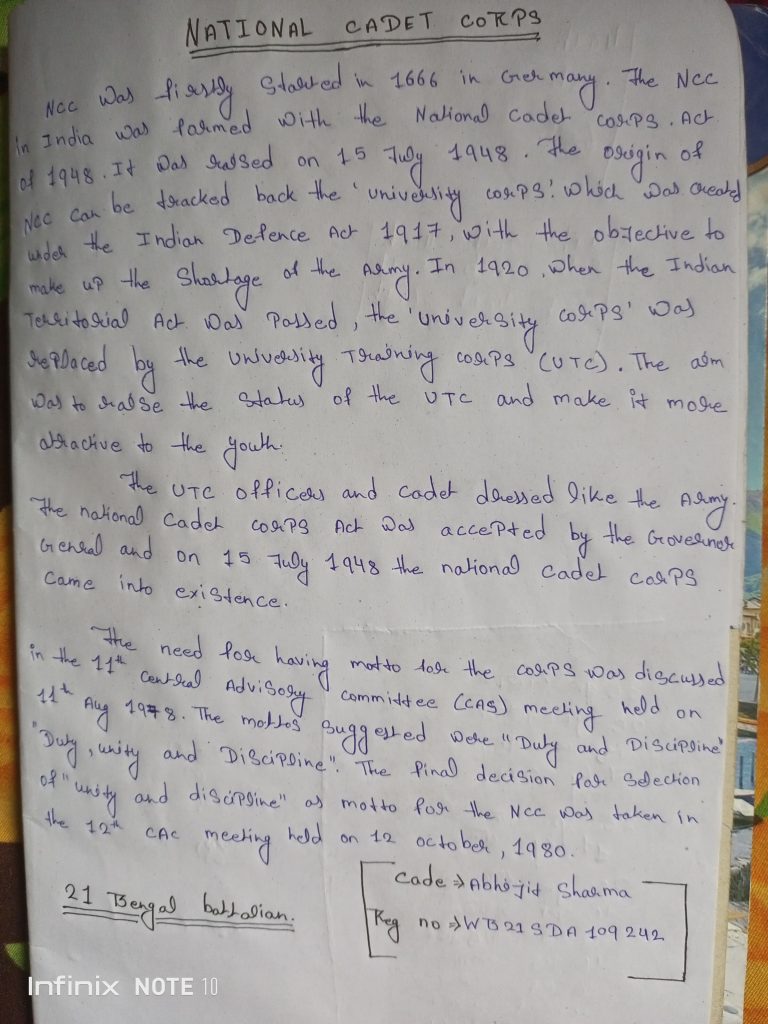 NATIONAL CADET CORPS
NCC was firstly started in 1666 in Germany. The NCC
in India was formed with the National Cadet Corps. Act
of 1948. It was raised on 15 July 1948. The origin of
NCC can be tracked back the 'university corps'. which was created
under the Indian Defence Act 1917, with the objective to
make up the Shortage of the Army. In 1920, when the Indian
Territorial Act was Passed, the 'university corps' was
replaced by the University Training corps (UTC). The aim
was to raise the Status of the UTC and make it more
attractive to the youth.
The UTC officers and cadet dressed like the Army.
The national cadet corps Act was accepted by the Governor
General and on 15 July 1948 the national cadet corps
came into existence.
The need for having motto for the corps was discussed
in the 11th central Advisory committee (CAS) meeting held on
11th Aug 1978. The mottos suggested were "Duty and Discipline"
"Duty, unity and Discipline". The final decision for selection
of "unity and discipline" as motto for the NCC was taken in
the 12th CAC meeting held on 12 october, 1980.
21 Bengal battalian.
Cade ⇒ Abhijit Sharma
Reg no ⇒ WB21SDA109242
Infinix NOTE 10